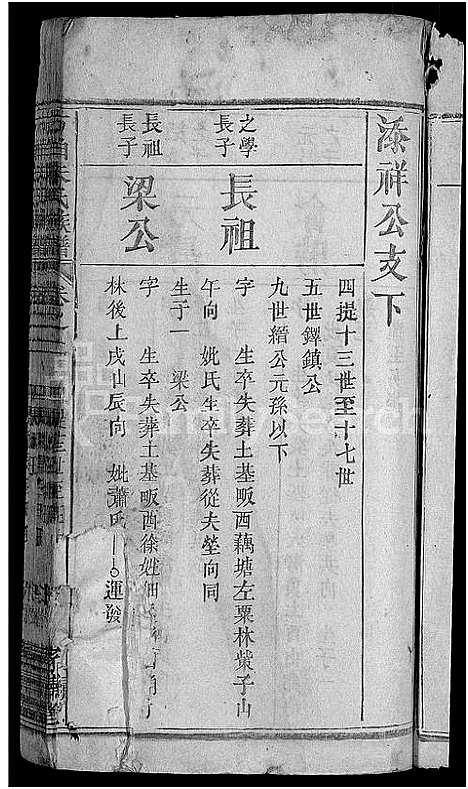 添祥公支下
四提十三世至十七世
五世鐸鎮公
九世縉公元孫以下
之學
長子
長祖
字 生卒失葬土基畈西藕塘左粟林柴子山
午向 妣氏生卒失葬從夫塋向同
生子一 梁公
長祖
長子
梁公
字 生卒失葬土基畈酉徐姓佃
林後上戌山辰向 妣蕭氏 運發